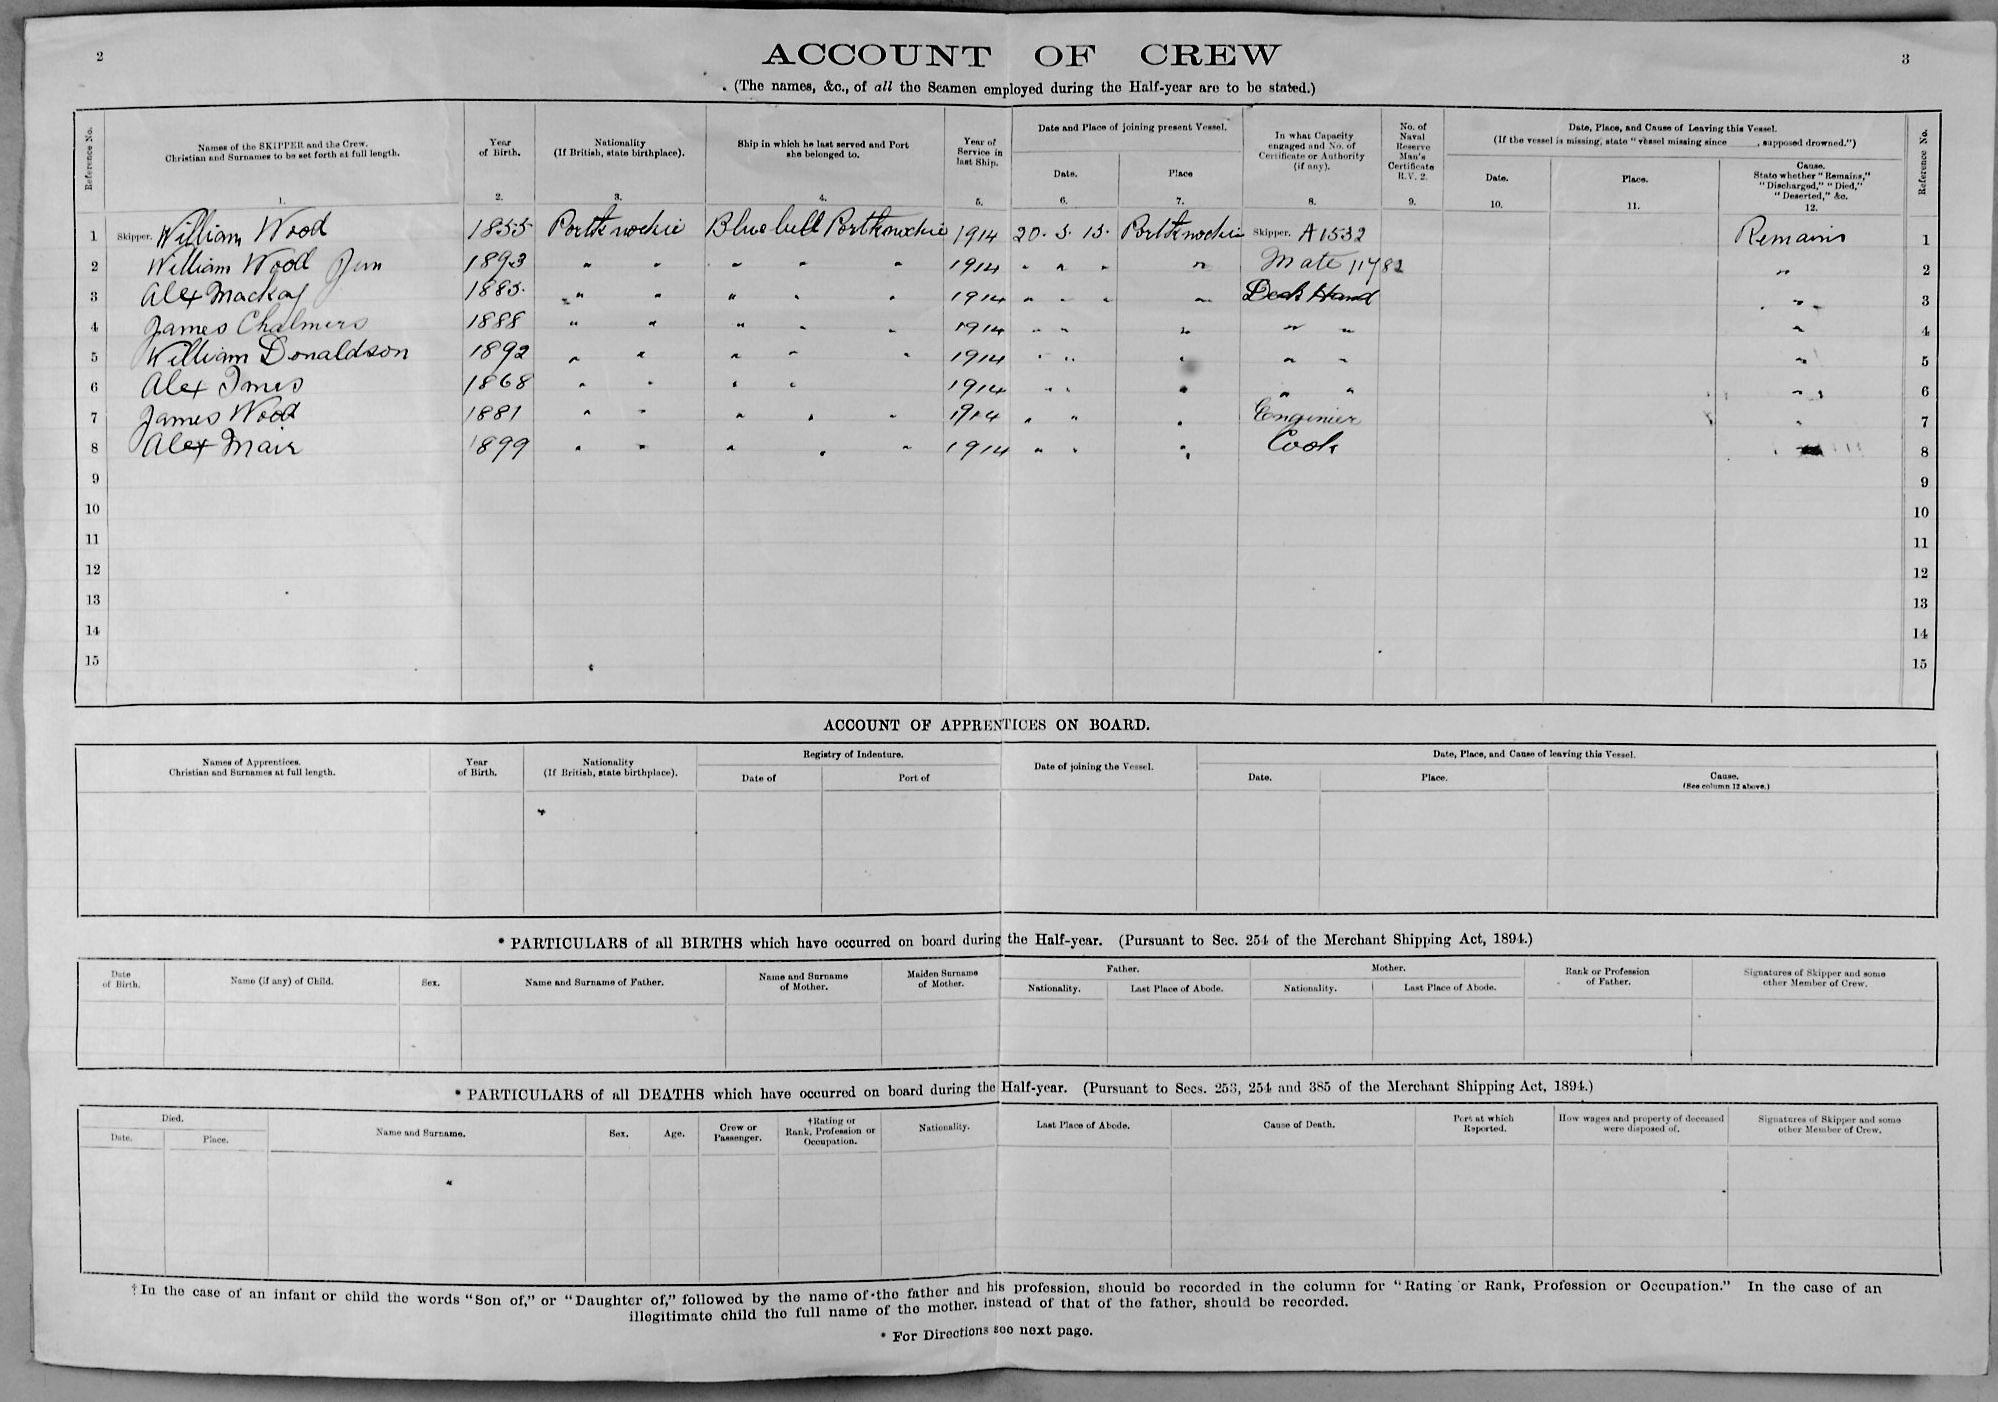 2
ACCOUNT OF CREW
3
(The names, &c., of all the Seamen employed during the Half-year are to be stated.)
Reference No.
Names of the SKIPPER and the Crew. Christian and Surnames to be set forth at full length.
1.
Year of Birth.
2.
Nationality (If British, state birthplace).
3.
Ship in which he last served and Port she belonged to.
4.
Year of Service in last Ship.
5.
Date and Place of joining present Vessel.
Date.
6.
Place
7.
In what Capacity engaged and No. of Certificate or Authority (if any).
8.
No. of Naval Reserve Man's Certificate R.V. 2.
9.
Date, Place, and Cause of Leaving this Vessel.
(If the vessel is missing, state "vessel missing since ______, supposed drowned.")
Date.
10.
Place.
11.
Cause. State whether "Remains," "Discharged," "Died," "Deserted," &c.
12.
Reference No.
1 Skipper. William Wood 1855 Portknockie Bluebell Portknockie 1914 20. 3. 15. Portknockie Skipper. A1532 Remains 1
2 William Wood Jun 1893 " " " " " 1914 " " " " Mate 11782 " 2
3 Alex Mackay 1885 " " " " " 1914 " " " " Deck Hand " 3
4 James Chalmers 1888 " " " " " 1914 " " " " " " 4
5 William Donaldson 1892 " " " " " 1914 " " " " " " 5
6 Alex Innes 1868 " " " " 1914 " " " " " " 6
7 James Wood 1881 " " " " " 1914 " " " Enginier " 7
8 Alex Mair 1899 " " " " " 1914 " " " Cook " 8
9 9
10 10
11 11
12 12
13 13
14 14
15 15
ACCOUNT OF APPRENTICES ON BOARD.
Names of Apprentices. Christian and Surnames at full length.
Year of Birth.
Nationality (If British, state birthplace).
Registry of Indenture.
Date of
Port of
Date of joining the Vessel.
Date, Place, and Cause of leaving this Vessel.
Date.
Place.
Cause. (See column 12 above.)
* PARTICULARS of all BIRTHS which have occurred on board during the Half-year. (Pursuant to Sec. 254 of the Merchant Shipping Act, 1894.)
Date of Birth.
Name (if any) of Child.
Sex.
Name and Surname of Father.
Name and Surname of Mother.
Maiden Surname of Mother.
Father.
Nationality.
Last Place of Abode.
Mother.
Nationality.
Last Place of Abode.
Rank or Profession of Father.
Signatures of Skipper and some other Member of Crew.
* PARTICULARS of all DEATHS which have occurred on board during the Half-year. (Pursuant to Secs. 253, 254 and 385 of the Merchant Shipping Act, 1894.)
Died.
Date.
Place.
Name and Surname.
Sex.
Age.
Crew or Passenger.
†Rating or Rank, Profession or Occupation.
Nationality.
Last Place of Abode.
Cause of Death.
Port at which Reported.
How wages and property of deceased were disposed of.
Signatures of Skipper and some other Member of Crew.
† In the case of an infant or child the words "Son of," or "Daughter of," followed by the name of the father and his profession, should be recorded in the column for "Rating or Rank, Profession or Occupation." In the case of an
illegitimate child the full name of the mother, instead of that of the father, should be recorded.
* For Directions see next page.